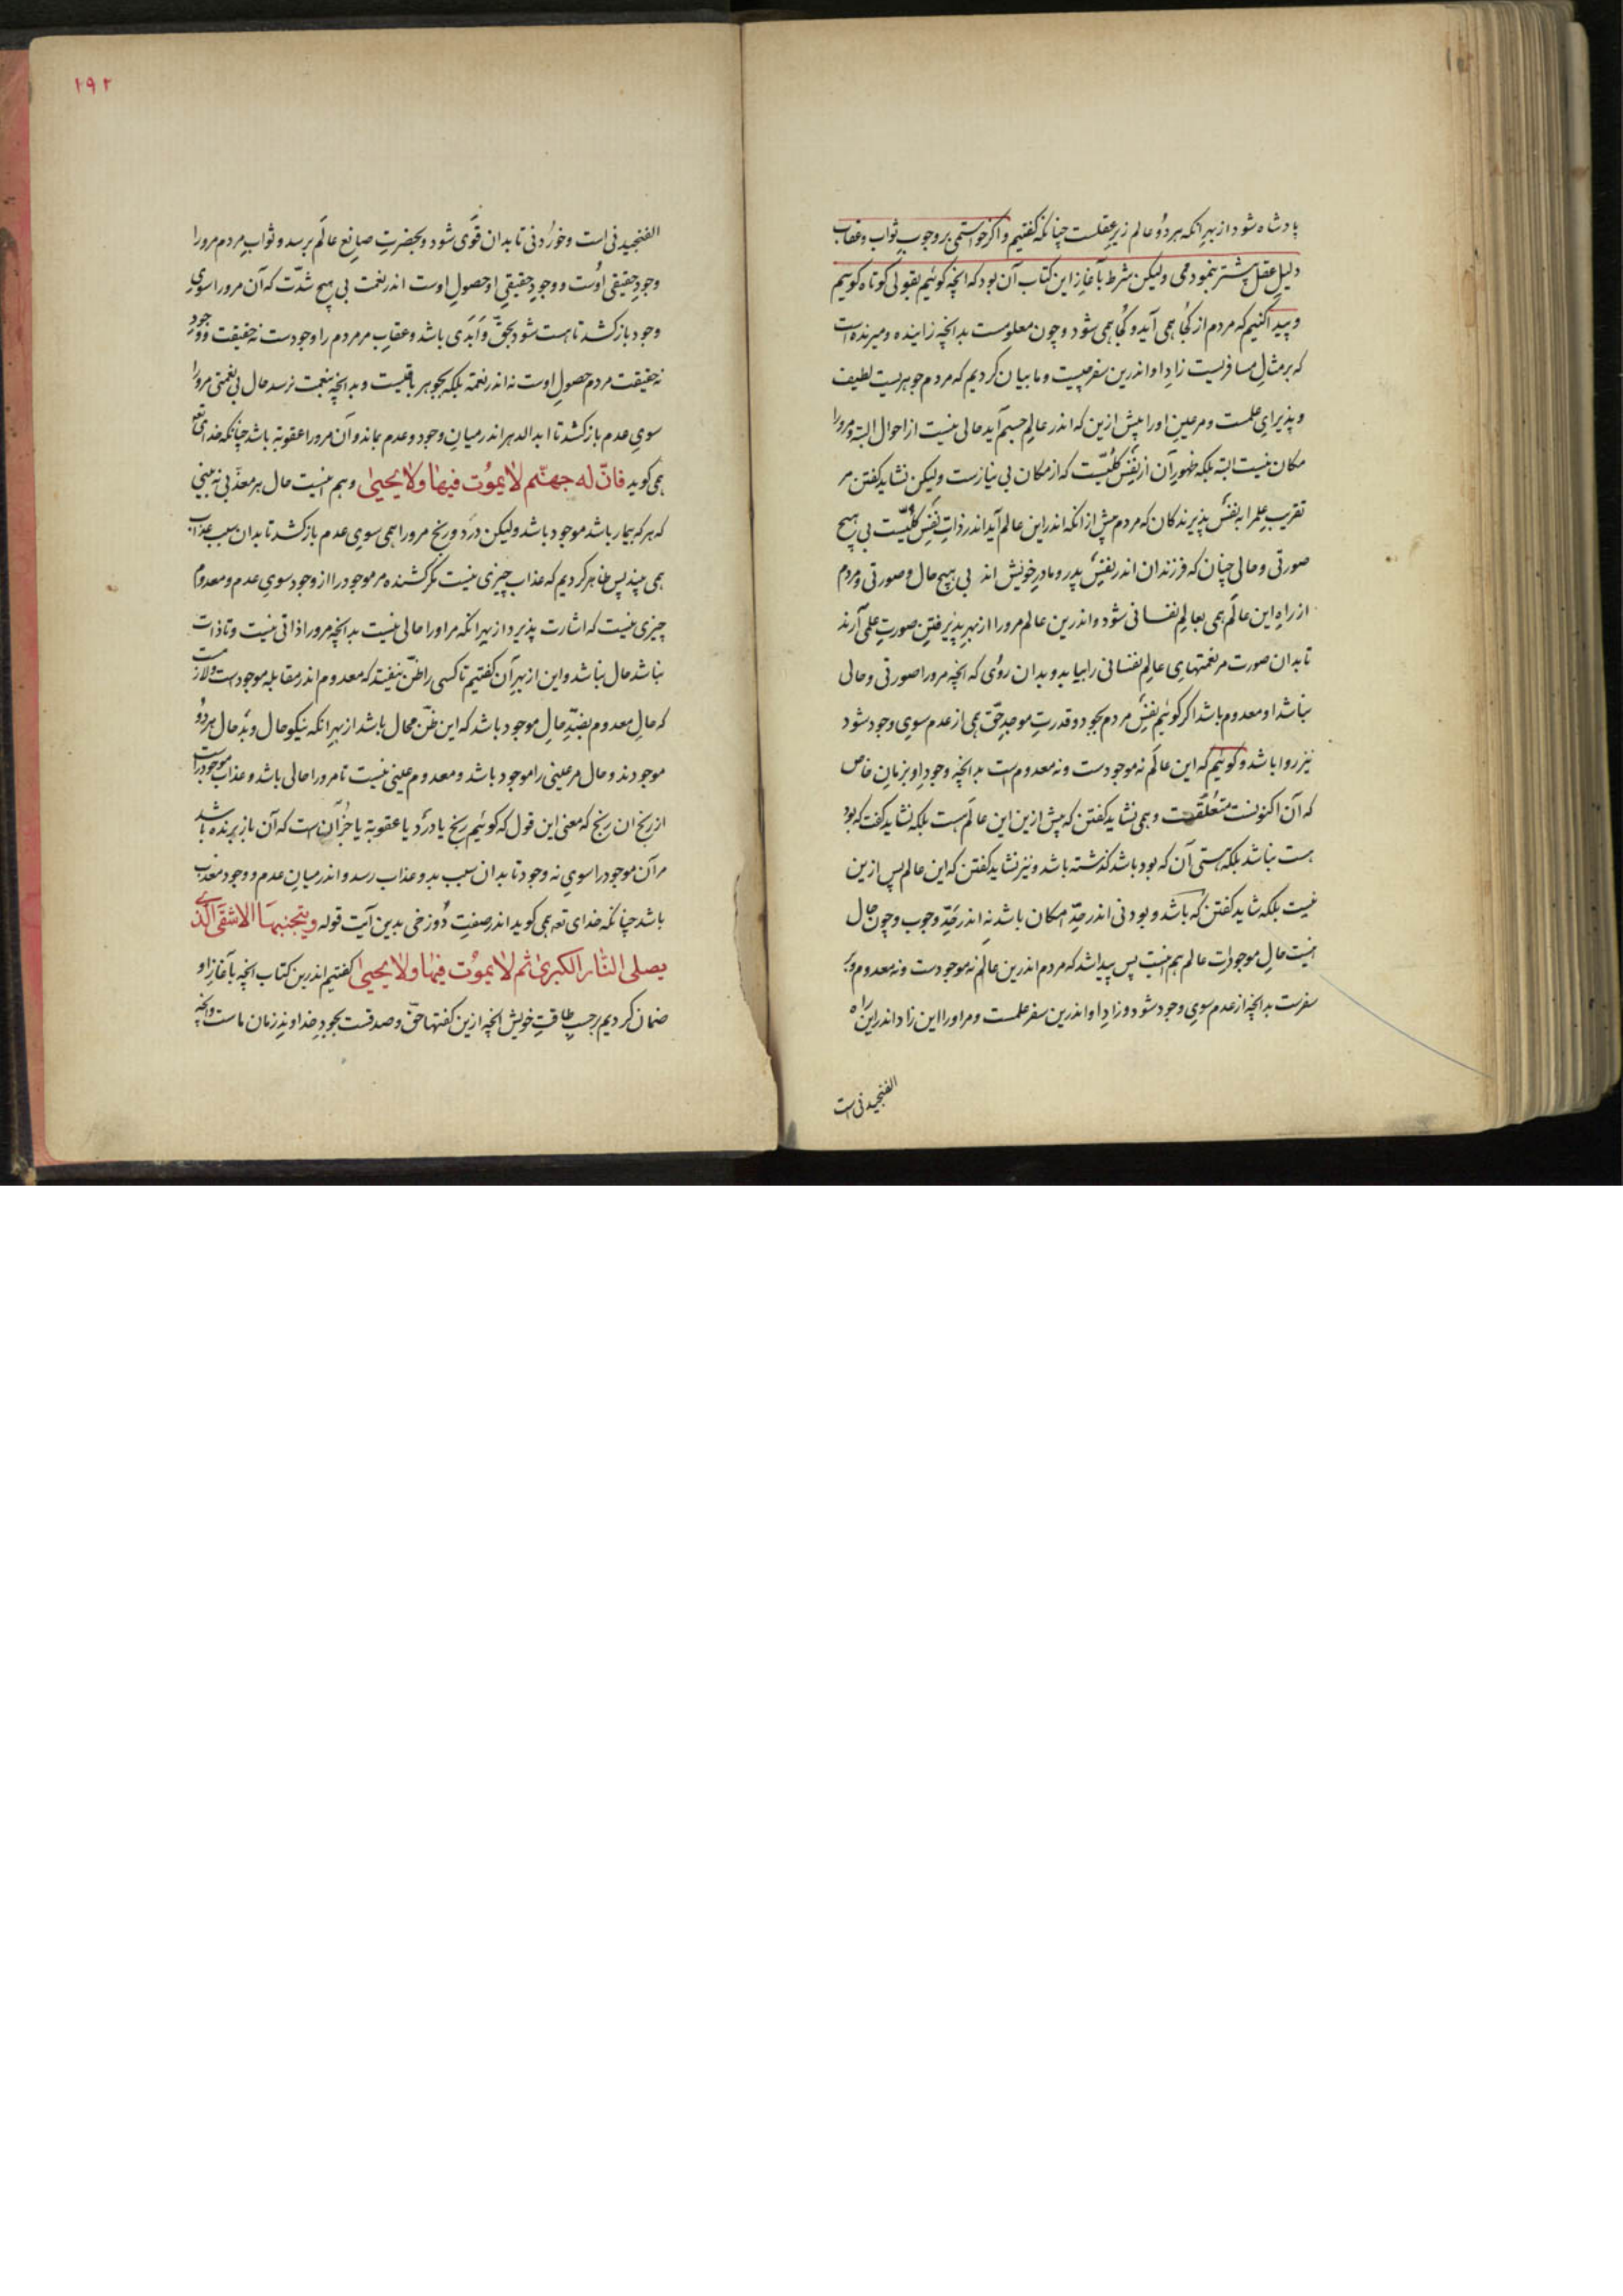 پادشاه شود از بهر انکه هر دو عالم زیر عقلست چنانکه کفتیم و اکر خواستمی بر وجوب ثواب و عقاب
دلیل عقل پیشتر بنمودمی ولیکن شرط بآغاز این کتاب آن بود که انچه کوئیم بقولی کوتاه کوئیم
و پیدا کنیم که مردم از کجا همی آید و کجا همی شود و چون معلومست بدانچه زاینده و میرنده است
که بر مثل مسافریست زاد او اندرین سفر چیست و ما بیان کردیم که مردم جوهریست لطیف
و پذیرای علمست و مر عین اورا پیش ازین که اندر عالم جسم آید حالی نیست از احوال البته و مرورا
مکان نیست البته بلکه ظهور آن از نفس کلیّست که از مکان بی نیازست ولیکن نشاید کفتن مر
تقریب علم را به نفس پذیرندکان که مردم پیش از انکه اندر این عالم آید اندر ذات نفس کلیّست بی هیچ
صورتی و حالی چنان که فرزندان اندر نفس پدر و مادر خویش اند بی هیچ حال و صورتی و مردم
از راه این عالم همی بعالم نفسانی شود و اندرین عالم مرورا از بهر پذیرفتن صورت علمی آرند
تا بدان صورت مر نعمتهای عالم نفسانی را بیابد و بدان روی که انچه مرورا صورتی و حالی
نباشد او معدوم باشد اکر کوئیم نفس مردم بجود و قدرت موجد حقّ همی از عدم سوی وجود شود
نیز روا باشد و کوئیم که این عالم نه موجودست و نه معدوم است بدانچه وجود او بزمان خاص
که آن اکنونست متعلّقست و همی نشاید کفتن که پیش ازین این عالم هست بلکه نشاید کفت که بود
هست نباشد بلکه هستی آن که بود باشد کذشته باشد و نیز نشاید کفتن که این عالم پس ازین
نیست بلکه شاید کفتن که باشد و بودنی اندر حدّ امکان باشد نه اندر حدّ وجوب و چون حال
اینست حال موجودات عالم هم اینست پس پیدا شد که مردم اندرین عالم نه موجودست و نه معدوم و بر
سفرست بدانچه از عدم سوی وجود شود و زاد او اندرین سفر علمست و مر اورا این زاد اندر این راه
الفنجیدنی است
۱۹۲
الفنجیدنی است و خوردنی تا بدان قوی شود و بحضرت صانع عالم برسد و ثواب مردم مرورا
وجود حقیقی اوست و وجود حقیقی او حصول اوست اندر نعمت بی هیچ شدّت که آن مرورا سوی
وجود باز کشد تا هست شود بحقّ و ابدی باشد و عقاب مر مردم را وجودست نه حقیقت و وجود
نه حقیقت مردم حصول اوست نه اندر نعمة بلکه بجوهر باقیست و بدانچه بنعمت نرسد حال بی نعمتی مرورا
سوی عدم باز کشد تا ابد الدهر اندر میان وجود و عدم بماند و آن مرورا عقوبة باشد چنانکه خدای تع
همی کوید فانّ له جهنّم لا یموت فیها ولا یحیی و هم اینست حال هر معذّبی نه بینی
که هر که بیمار باشد موجود باشد ولیکن درد و رنج مرورا همی سوی عدم باز کشد تا بدان سبب عذاب
همی بیند پس ظاهر کردیم که عذاب چیزی نیست مکر کشنده مر موجود را از وجود سوی عدم و معدوم
چیزی نیست که اشارت پذیرد از بهر انکه مر اورا حالی نیست بدانچه مرورا ذاتی نیست و تا ذات
نباشد حال نباشد و این از بهر آن کفتیم تا کسی را ظنّ نیفتد که معدوم اندر مقابله موجودست و لازمست
که حال معدوم بضدّ حال موجود باشد که این ظنّ محال باشد از بهر انکه نیکوحال و بدحال هر دو
موجودند و حال مر عینی را موجود باشد و معدوم عینی نیست تا مرورا حالی باشد و عذاب موجود راست
از رنج ان رنج که معنی این قول که کوئیم رنج یا درد یا عقوبة یا جز آن است که آن باز برنده باشد
مر آن موجود را سوی نه وجود تا بدان سبب بدو عذاب رسد و اندر میان عدم و وجود معذب
باشد چنانکه خدای تعه همی کوید اندر صفت دوزخی بدین آیت قوله ویتجنبها الاشقی الّذی
یصلی النّار الکبری ثم لا یموت فیها ولا یحیی کفتیم اندرین کتاب انچه بآغاز او
ضمان کردیم برحسب طاقت خویش انچه ازین کفتهاحقّ و صدقست بجود خداوند زمان ماست و انچه